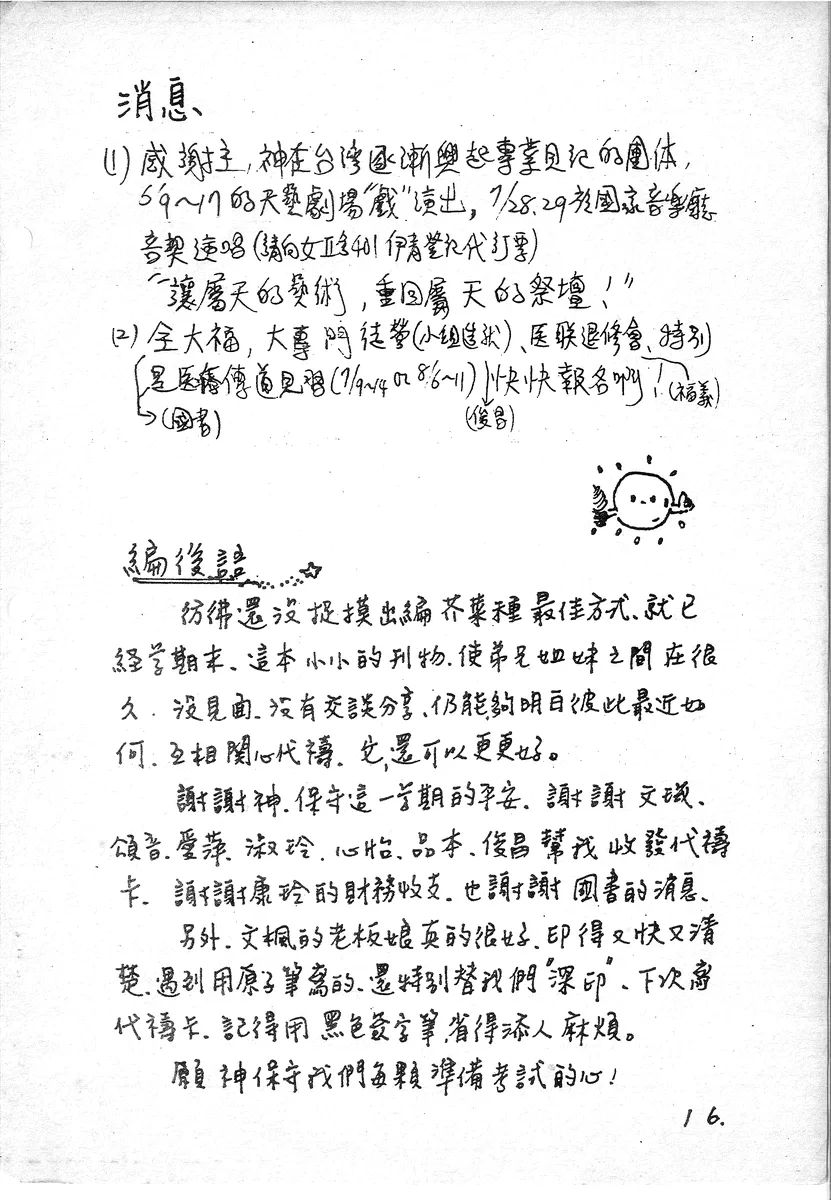 消息
(1) 感謝主，神在台灣逐漸興起專業見記的團体，
6/9～17的天藝劇場"戲"演出，7/28.29於國家音樂廳
音契演唱(請向女II舍401伊青登記代訂票)
"讓屬天的藝術，重回屬天的祭壇！"
(2) 全大福，大專門徒營(小組進狀)、医联退修會、特別
是医療傳道見習(7/9~14 or 8/6~11)快快報名啊！(福義)
(國書) (俊昌)
編後語
彷彿還沒捉摸出編芥菜種最佳方式、就已
経学期末、這本小小的刊物、使弟兄姐妹之間在很
久．沒見面、沒有交談分享、仍能夠明白彼此最近如
何、互相関心代禱．它,還可以更更好。
謝謝神、保守這一学期的平安．謝謝文
頌音、愛萍、淑玲．心怡、品本、俊昌幫我收發代禱
卡．謝謝康玲的財務收支．也謝謝國書的消息、
另外、文楓的老板娘真的很好、印得又快又清
楚、遇到用原子筆寫的、還特別替我們"深印"、下次寫
代禱卡、記得用黑色簽字筆,省得添人麻煩。
願神保守我們每顆準備考試的心！
16.